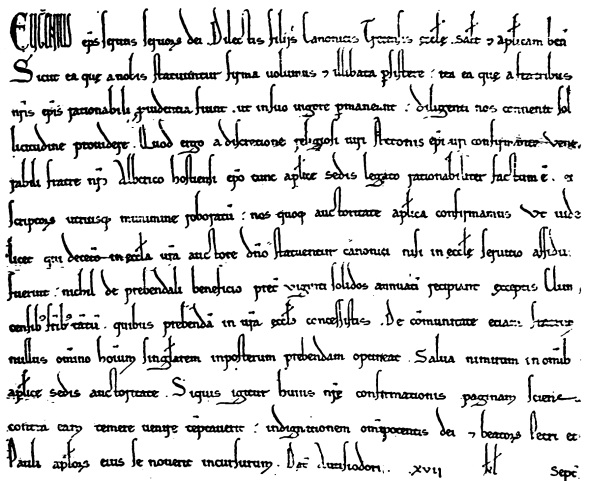 EUGENIUS ep̄s seruus seruoꝝ dei. Dilectis filijs Canonicis Trecensis ecclē. Salt̄ ⁊ aplicam ben̄
Sicut ea que a nobis statuuntur firma uolumus ⁊ illibata psistere : ita ea que a fratribus
nr̄is ep̄is rationabili prudentia fiunt. ut in suo uigore pmaneant : diligenti nos conuenit sol
licitudine prouidere. Quod ergo a discretione religiosi uiri Attonis ep̄i uri confirmante uene,
rabili fratre nr̄o Alberico hostiensi ep̄o tunc aplice sedis legato rationabiliter factum ē. et
scriptoꝝ utriusq munimine roboratū : nos quoq auctoritate aplica confirmamus Ut uide
licet qui decetō in eccla ura auctore dn̄o statuentur canonici nisi in eccle seruitio assidui
fuerint : nichil de prebendali beneficio pret uiginti solidos annuatī recipiant exceptis Clun,
censib fr̄ib tātū. quibus prebendā in ura eccla concessistis. De cōmunitate etiam
nullus om̄ino hoīum singlarem inposterum prebendam optineat. Salua nimirum in om̄ib
aplice sedis auctoritate. Siquis igitur huius nr̄e confirmationis paginam sciens
contra eam temere uenire tēptauerit : indignationem om̄ipotentis dei ⁊ beatoꝝ Petri et
Pauli aplōꝝ eius se nouerit incursurum. Dat̄ Autisiodori. .xvii kl Sept̄.